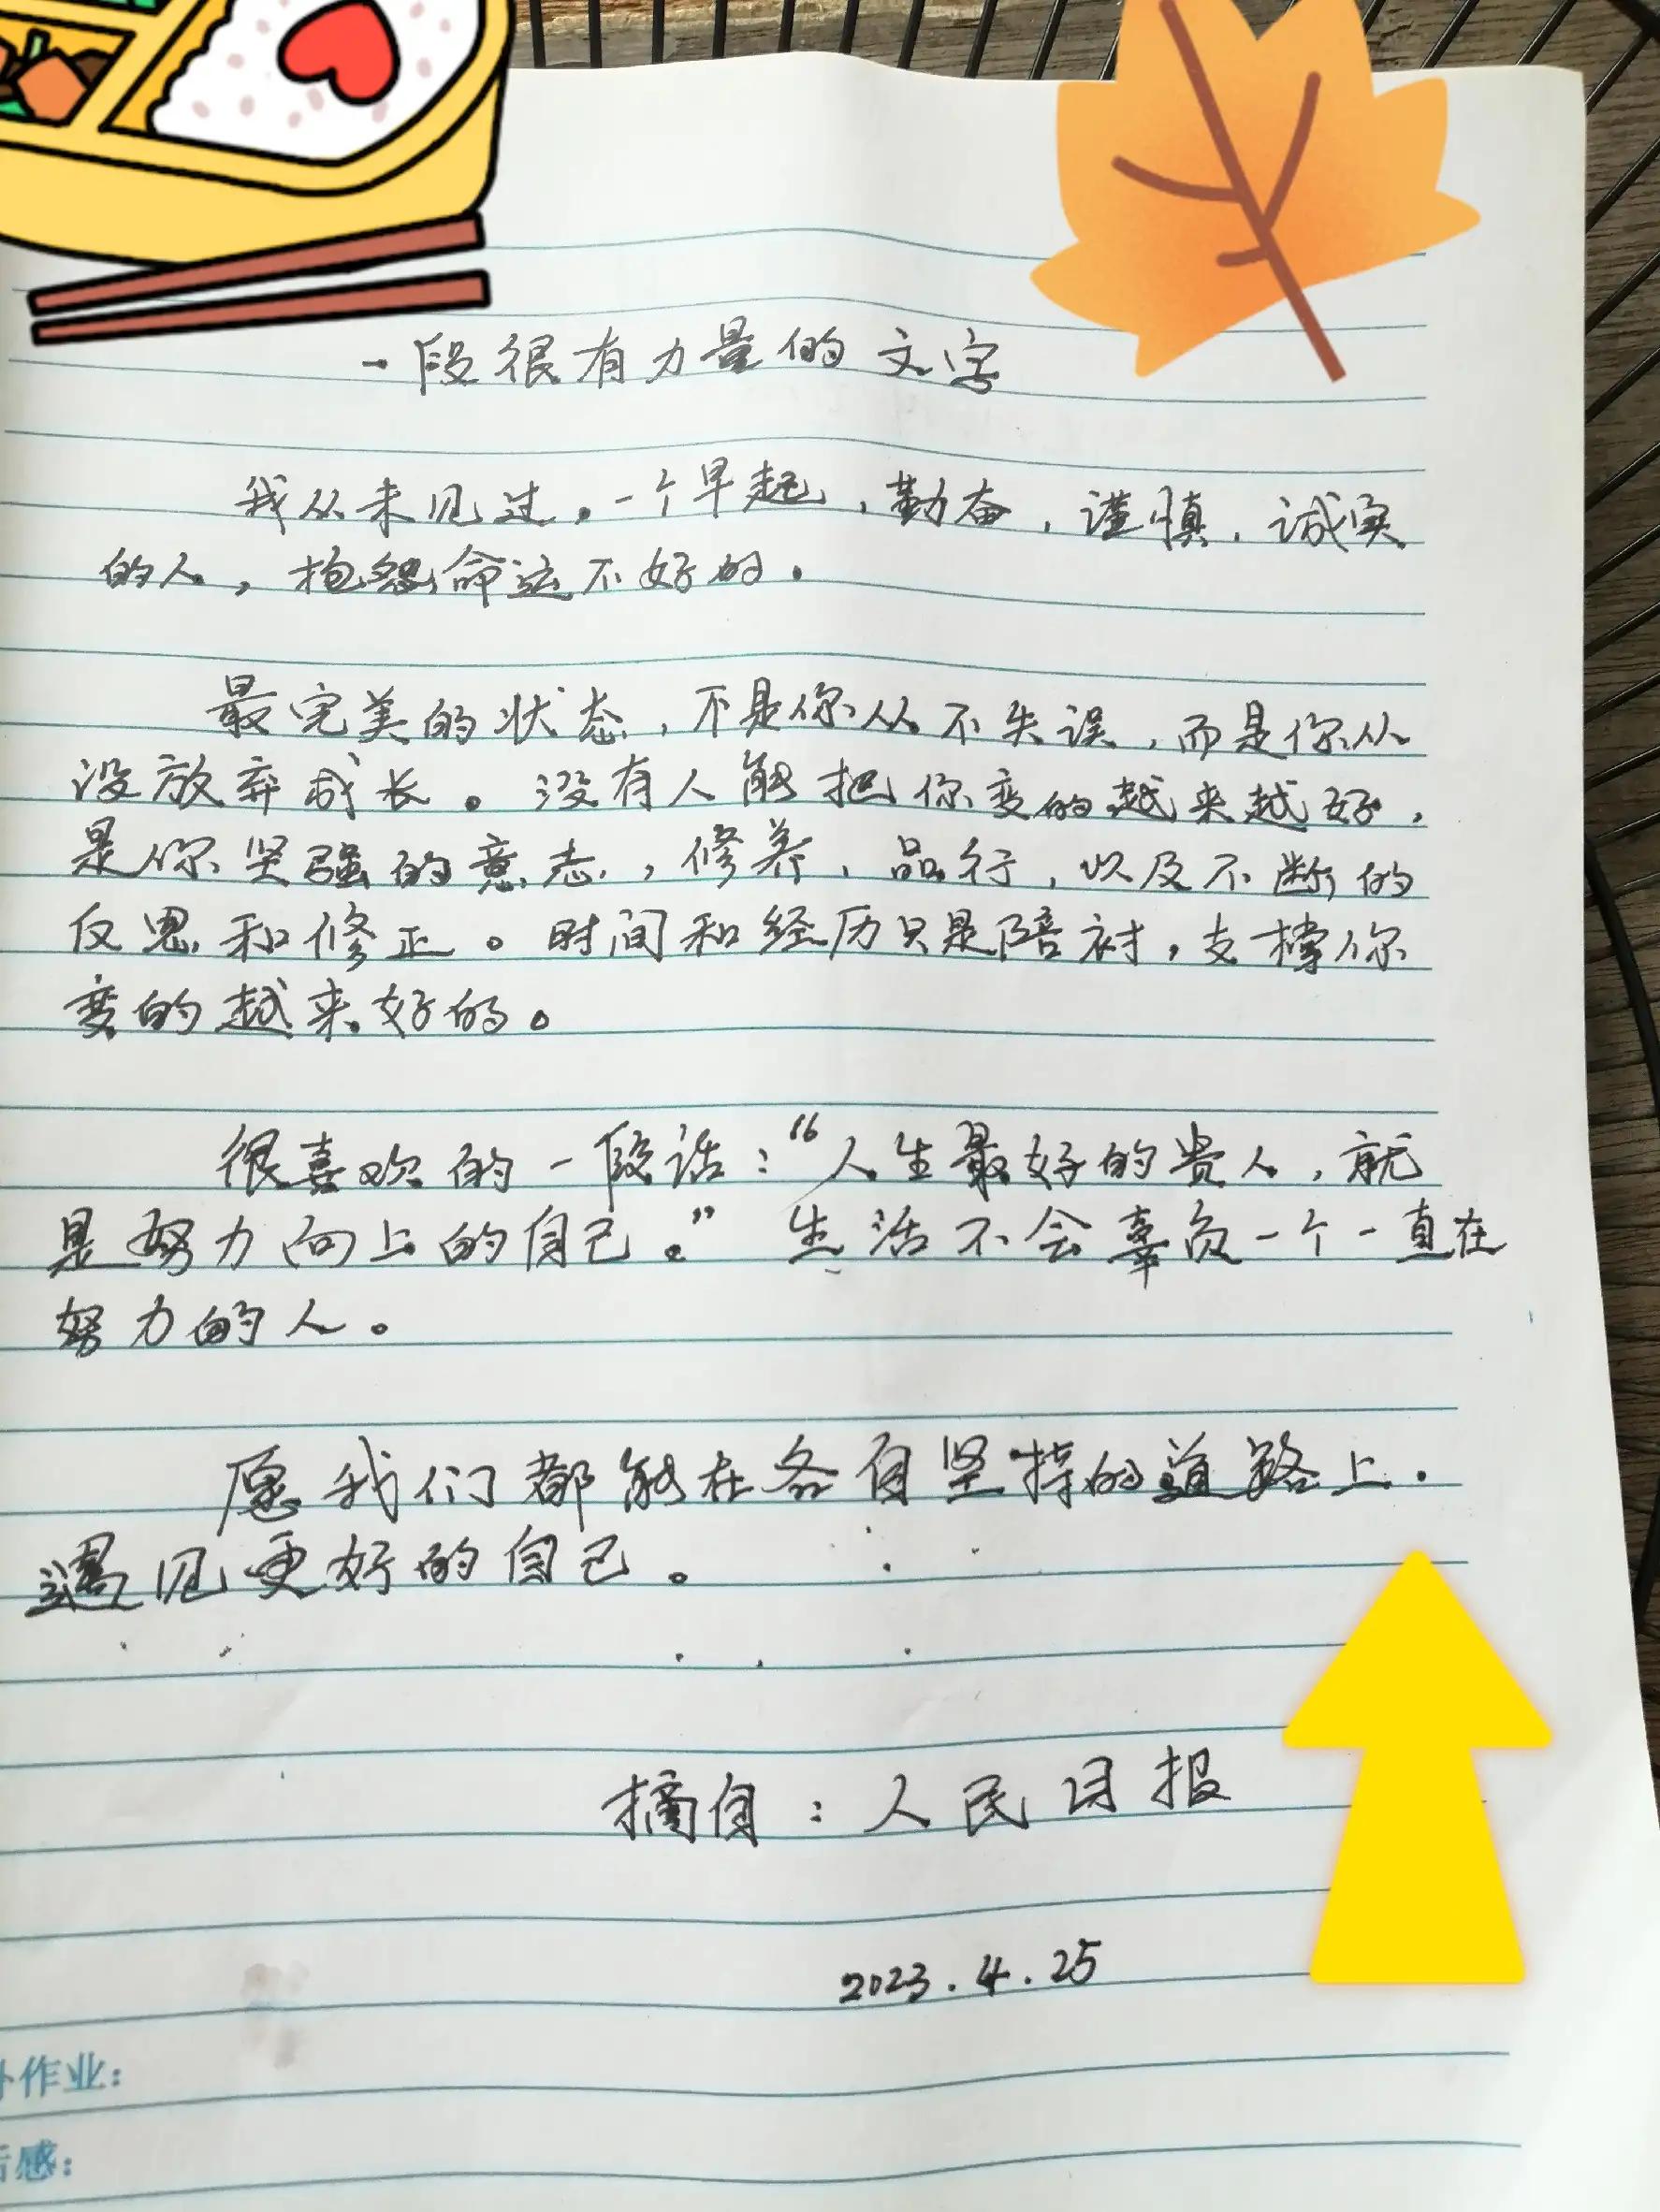 一段很有力量的文字
我从未见过。一个早起,勤奋,谨慎,诚实
的人,抱怨命运不好的.
最完美的状态,不是你从不失误,而是你从
没放弃成长。没有人能把你变的越来越好,
是你坚强的意志,修养、品行,以及不断的
反思和修正。时间和经历只是陪衬,支撑你
变的越来好的。
很喜欢的一段话:“人生最好的贵人,就
是努力向上的自己。”生活不会辜负一个一直在
努力的人。
愿我们都能在各自坚持的道路上.
遇见更好的自己。
摘自:人民日报
2023.4.25
作业:
感: